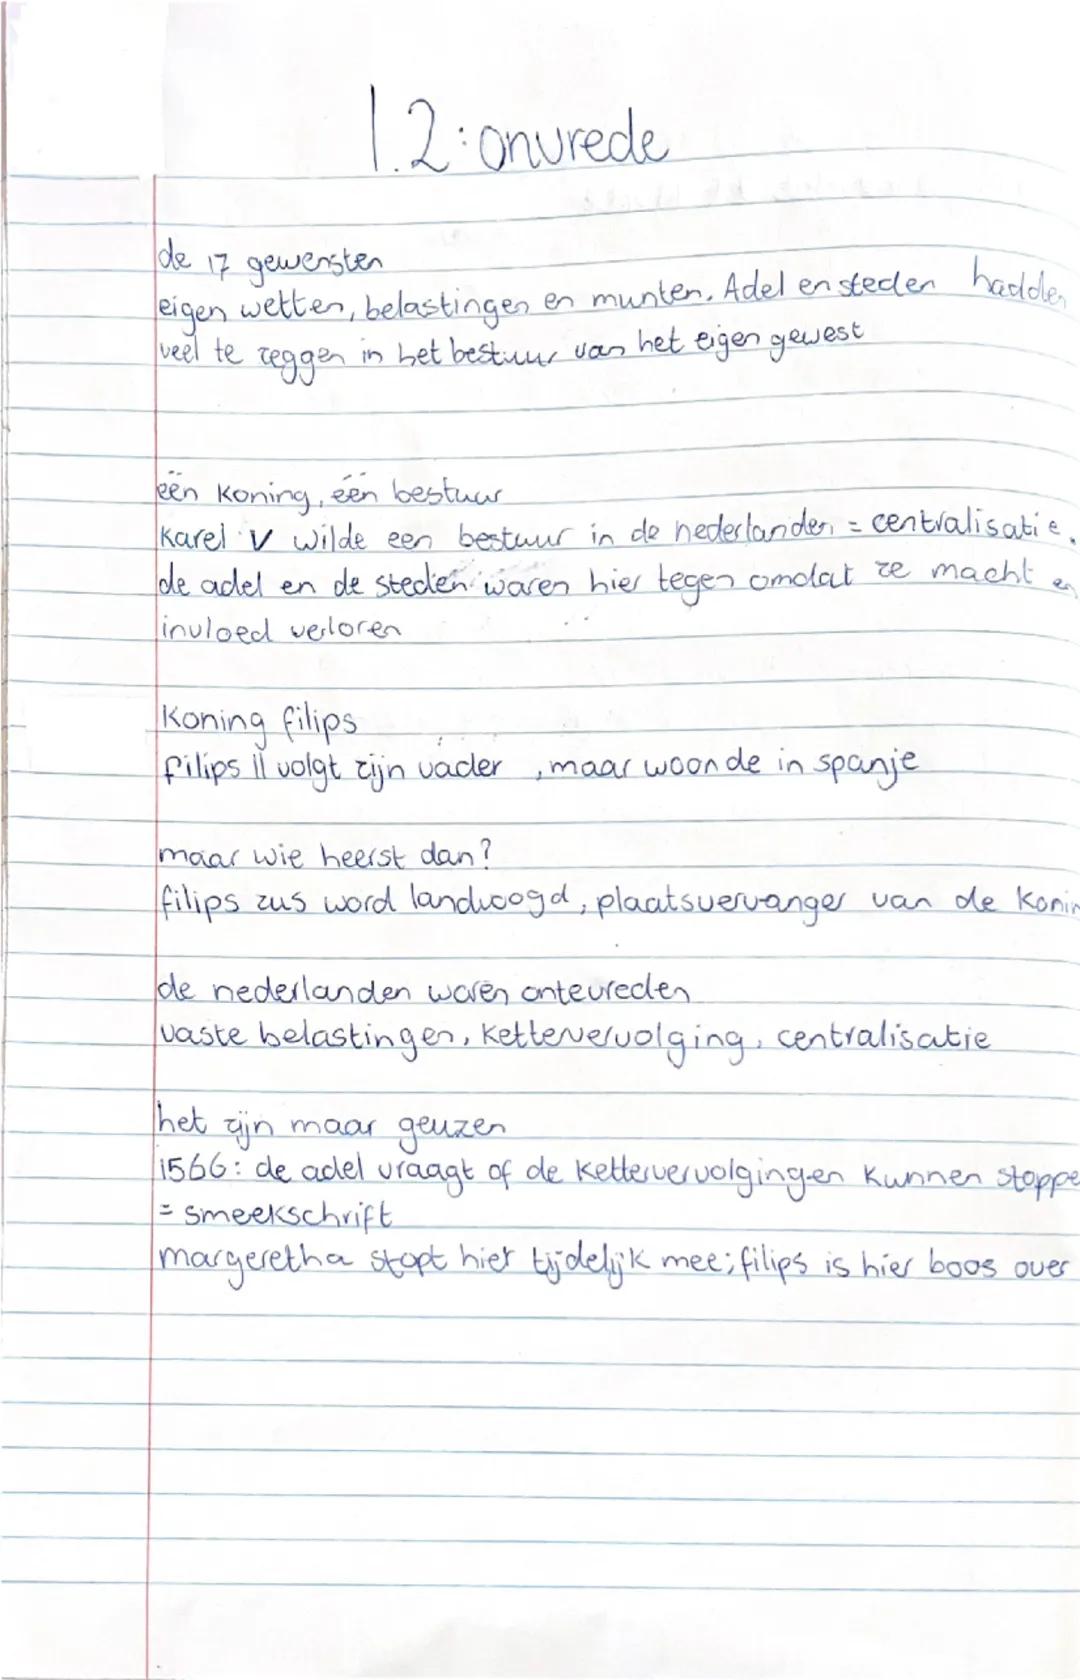 1.2: onvrede
de 17 gewensten
eigen wetten, belastingen en munten. Adel en steden hadden
veel te zeggen in het bestuur van het eigen gewest
één koning, één bestuur
Karel V wilde een bestuur in de nederlanden = centralisatie.
de adel en de steden waren hier tegen omdat ze macht en
invloed verloren
Koning filips
filips II volgt zijn vader , maar woonde in spanje
maar wie heerst dan?
filips zus word landvoogd, plaatsvervanger van de Konin
de nederlanden waren ontevreden
vaste belastingen, kettervervolging, centralisatie
het zijn maar geuzen
1566: de adel vraagt of de kettervervolgingen kunnen stoppe
= smeekschrift
margeretha stopt hier tijdelijk mee; filips is hier boos over